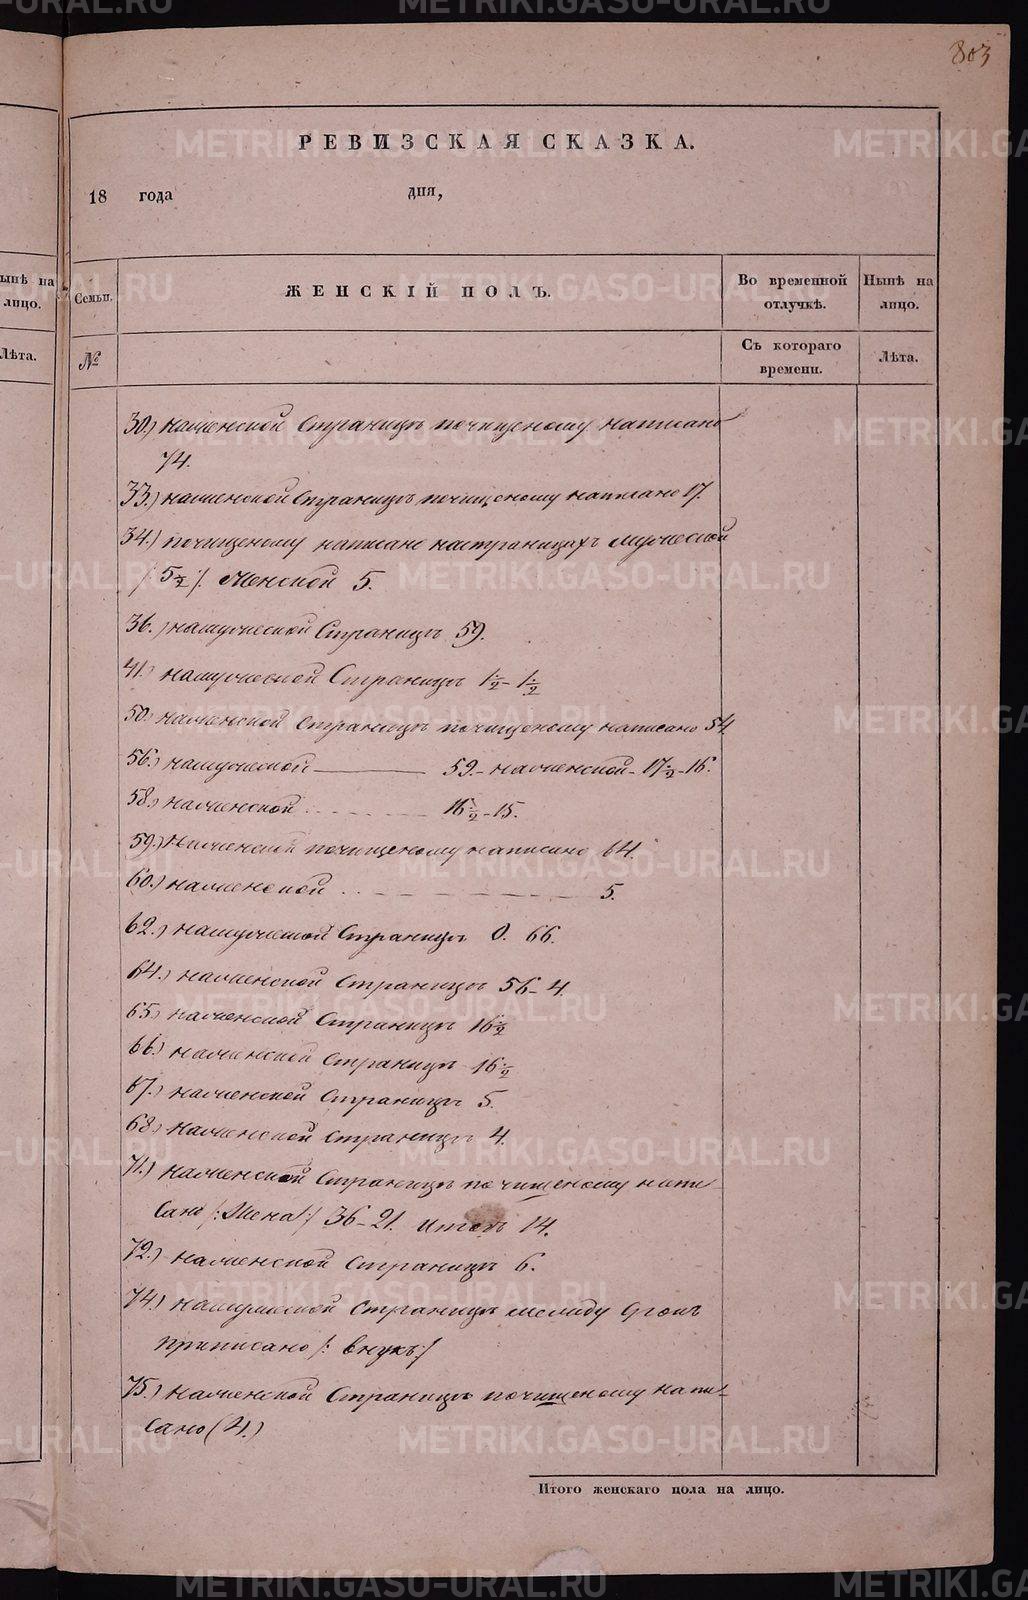 803
РЕВИЗСКАЯ СКАЗКА.
18 года дня,
Нынѣ на лицо.
Лѣта.
Семьи.
ЖЕНСКІЙ ПОЛЪ.
Во временной отлучкѣ.
Нынѣ на лицо.
№
Съ котораго времени.
Лѣта.
30.) на женской страницѣ почищеному написано
74.
33.) на женской страницѣ почищеному написано 17.
34.) почищеному написано на страницахъ мужеской
/: 5½ /. Женской 5.
36.) на мужеской страницѣ 59.
41.) на мужеской страницѣ 1½ - 1½
50.) на женской страницѣ почищеному написано 54.
56.) на мужеской — 59. - на женской - 17½ - 16.
58.) на женской - - - - 16½ - 15.
59.) На женской почищеному написано 64.
60.) на женской - - - - 5.
62.) на мужеской страницѣ 0. 66.
64.) на женской страницѣ 56 - 4.
65.) на женской страницѣ 16½
66.) на женской страницѣ 16½
67.) на женской страницѣ 5.
68.) на женской страницѣ 4.
71.) на женской страницѣ почищеному напи-
сано /: Жена :/ 36 - 21. итогъ 14.
72.) на женской страницѣ 6.
74.) на мужеской страницѣ между строкъ
приписано /: внукъ :/
75.) на женской страницѣ почищеному напи-
сано (4.)
Итого женскаго пола на лицо.
METRIKI.GASO-URAL.RU